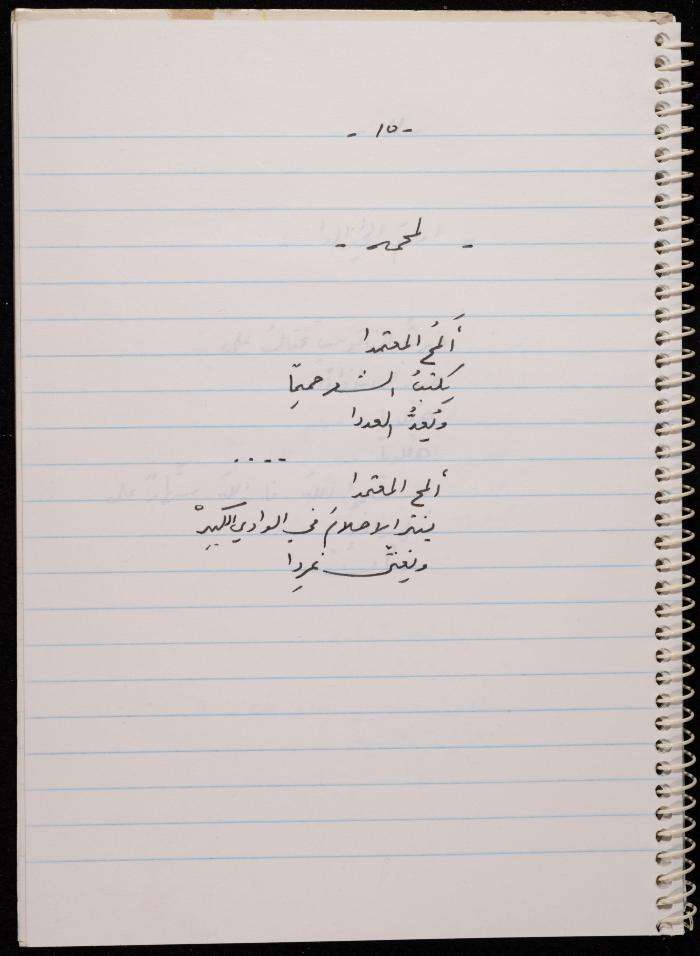 - ١٥ -
- لمحمد -
ألمحُ المعتمدا
يكتبُ الشعر حميمًا
ويُعِدُّ العددا
....
ألمح المعتمدا
ينثر الاحلامَ في الوادي الكبيرْ
ويغنّى غردا